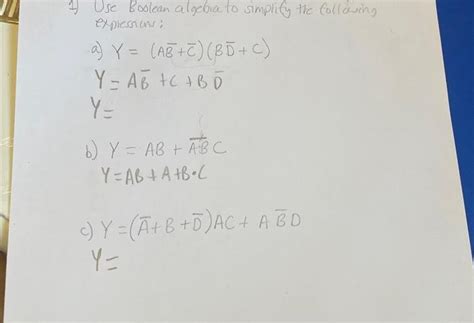 1) Use Boolean algebra to simplify the following
expressions:
a) Y = (AB̅ + C̅)(BD̅ + C)
Y = AB̅ + C + BD̅
Y =
b) Y = AB + A̅B̅ C
Y = AB + A + B • C
c) Y = (A̅ + B + D̅)AC + A B̅ D
Y =